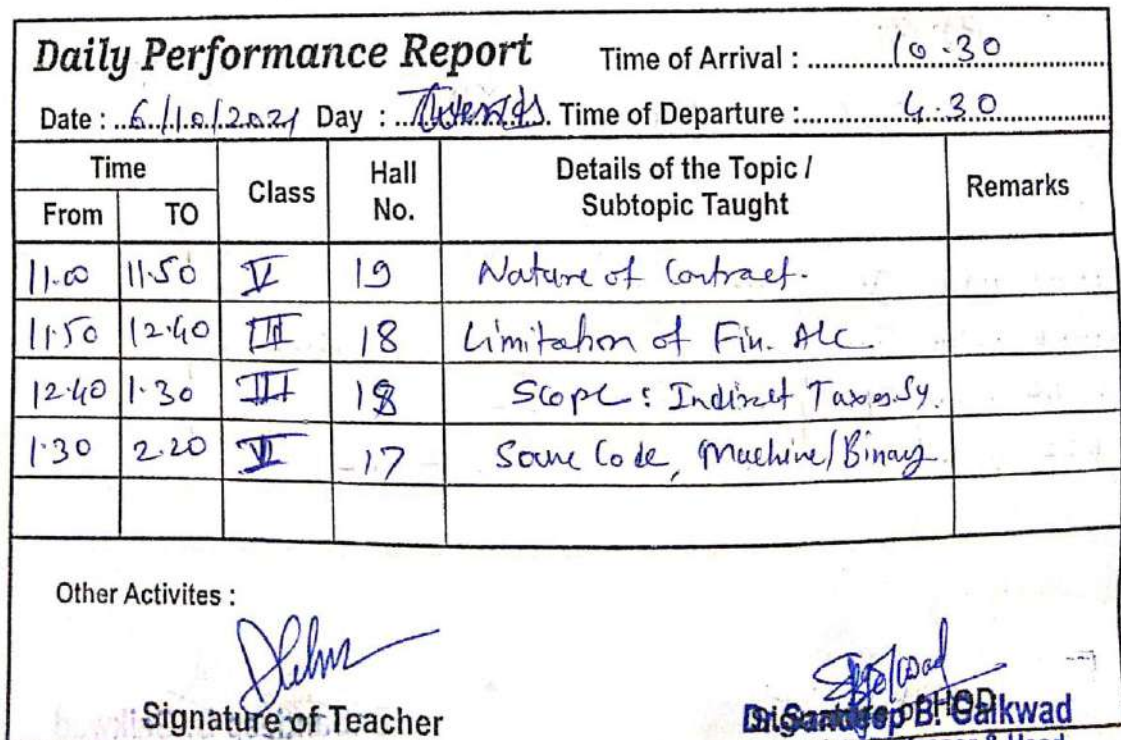 Daily Performance Report Time of Arrival : 10.30
Date : 6/10/2021 Day : Time of Departure : 4.30
Time Class Hall No. Details of the Topic / Subtopic Taught Remarks
From TO
11.00 11.50 V 19 Nature of Contract.
11.50 12.40 III 18 Limitation of Fin. A/c.
12.40 1.30 III 18 Scope : Indirect Taxes Sy.
1.30 2.20 VI 17 Source Code, Machine/Binary
Other Activites :
Signature of Teacher Signature of HOD
Dr. Sandeep B. Gaikwad
& Head